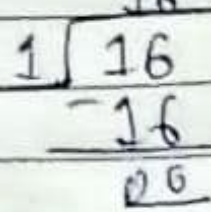 1 ⟌ 16
- 16
00